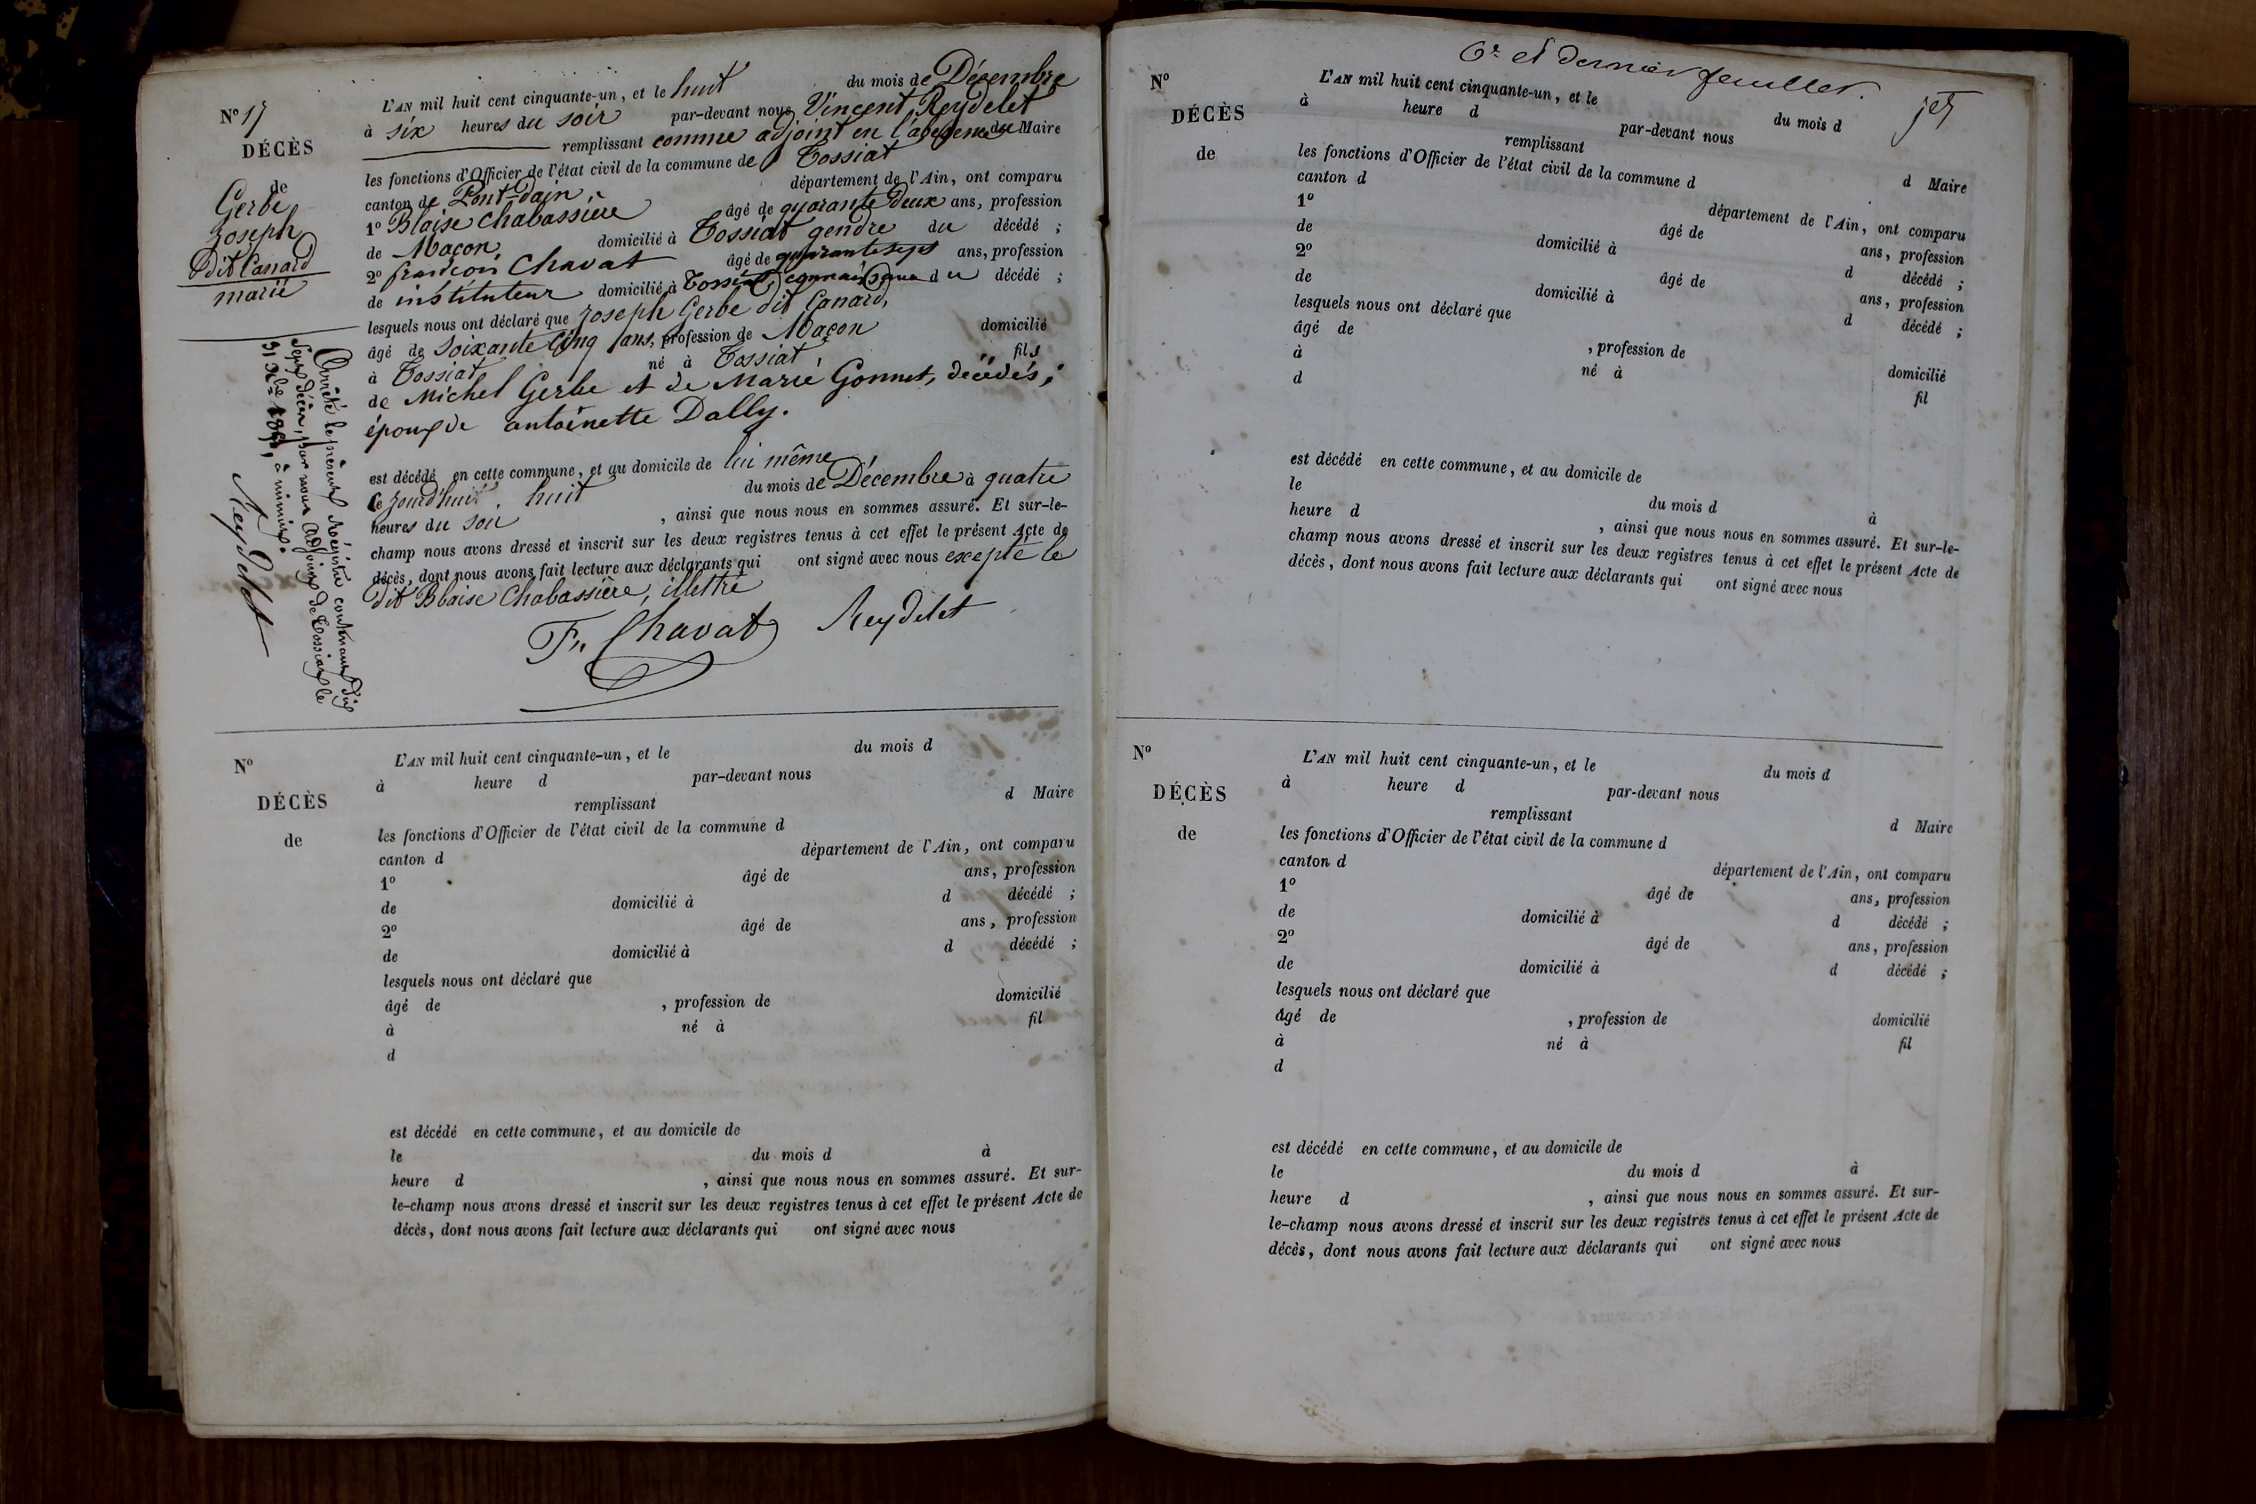 N° 17
DÉCÈS
de
Gerbe
Joseph
dit Canard
marié
L'AN mil huit cent cinquante-un, et le huit du mois de Décembre
à six heures du soir par-devant nous Vincent Reydelet
remplissant comme adjoint en l'absence du Maire
les fonctions d'Officier de l'état civil de la commune de Tossiat
canton de Pont-dain département de l'Ain, ont comparu
1° Blaise Chabassière âgé de quarante deux ans, profession
de Maçon domicilié à Tossiat gendre du décédé ;
2° françois Chavat âgé de quarante sept ans, profession
de instituteur domicilié à Tossiat, connaissance du décédé ;
lesquels nous ont déclaré que Joseph Gerbe dit Canard,
âgé de Soixante Cinq ans, profession de Maçon domicilié
à Tossiat né à Tossiat fils
de Michel Gerbe et de Marie Gonnet, décédés ;
époux de antoinette Dally.
est décédé en cette commune, et au domicile de lui même
le jourd'hui huit du mois de Décembre à quatre
heures du soir , ainsi que nous nous en sommes assuré. Et sur-le-
champ nous avons dressé et inscrit sur les deux registres tenus à cet effet le présent Acte de
décès, dont nous avons fait lecture aux déclarants qui ont signé avec nous excepté le
dit Blaise Chabassière, illettré
Fs Chavat Reydelet
Arrêté le présent Régistre contenant dix
Sept décès, par nous adjoint de Tossiat le
31 Xbre 1851, à minuit.
Reydelet
N°
DÉCÈS
de
L'AN mil huit cent cinquante-un, et le du mois d
à heure d par-devant nous
remplissant d Maire
les fonctions d'Officier de l'état civil de la commune d
canton d département de l'Ain, ont comparu
1° âgé de ans, profession
de domicilié à d décédé ;
2° âgé de ans, profession
de domicilié à d décédé ;
lesquels nous ont déclaré que
âgé de , profession de domicilié
à né à fil
d
est décédé en cette commune, et au domicile de
le du mois d à
heure d , ainsi que nous nous en sommes assuré. Et sur-
le-champ nous avons dressé et inscrit sur les deux registres tenus à cet effet le présent Acte de
décès, dont nous avons fait lecture aux déclarants qui ont signé avec nous
6e et dernier feuillet.
N°
DÉCÈS
de
L'AN mil huit cent cinquante-un, et le du mois d
à heure d par-devant nous
remplissant d Maire
les fonctions d'Officier de l'état civil de la commune d
canton d département de l'Ain, ont comparu
1° âgé de ans, profession
de domicilié à d décédé ;
2° âgé de ans, profession
de domicilié à d décédé ;
lesquels nous ont déclaré que
âgé de , profession de domicilié
à né à fil
d
est décédé en cette commune, et au domicile de
le du mois d à
heure d , ainsi que nous nous en sommes assuré. Et sur-le-
champ nous avons dressé et inscrit sur les deux registres tenus à cet effet le présent Acte de
décès, dont nous avons fait lecture aux déclarants qui ont signé avec nous
N°
DÉCÈS
de
L'AN mil huit cent cinquante-un, et le du mois d
à heure d par-devant nous
remplissant d Maire
les fonctions d'Officier de l'état civil de la commune d
canton d département de l'Ain, ont comparu
1° âgé de ans, profession
de domicilié à d décédé ;
2° âgé de ans, profession
de domicilié à d décédé ;
lesquels nous ont déclaré que
âgé de , profession de domicilié
à né à fil
d
est décédé en cette commune, et au domicile de
le du mois d à
heure d , ainsi que nous nous en sommes assuré. Et sur-
le-champ nous avons dressé et inscrit sur les deux registres tenus à cet effet le présent Acte de
décès, dont nous avons fait lecture aux déclarants qui ont signé avec nous